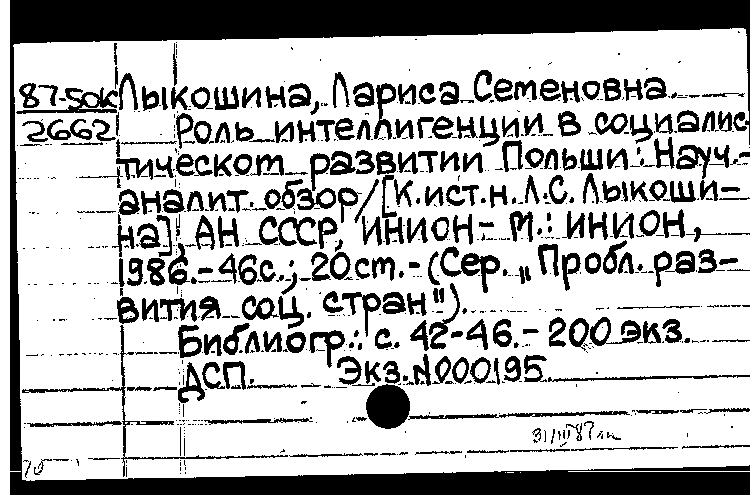 87-50К Лыкошина, Лариса Семеновна.
2662 Роль интеллигенции в социалис-
тическом развитии Польши: Науч.-
аналит. обзор/[К.ист.н.Л.С.Лыкоши-
на]; АН СССР, ИНИОН- М.: ИНИОН,
1986.-46с.; 20ст.-(Сер. „Пробл. раз-
вития соц. стран").
Библиогр.: с. 42-46.- 200 экз.
ДСП. Экз.N000195
31/III 87